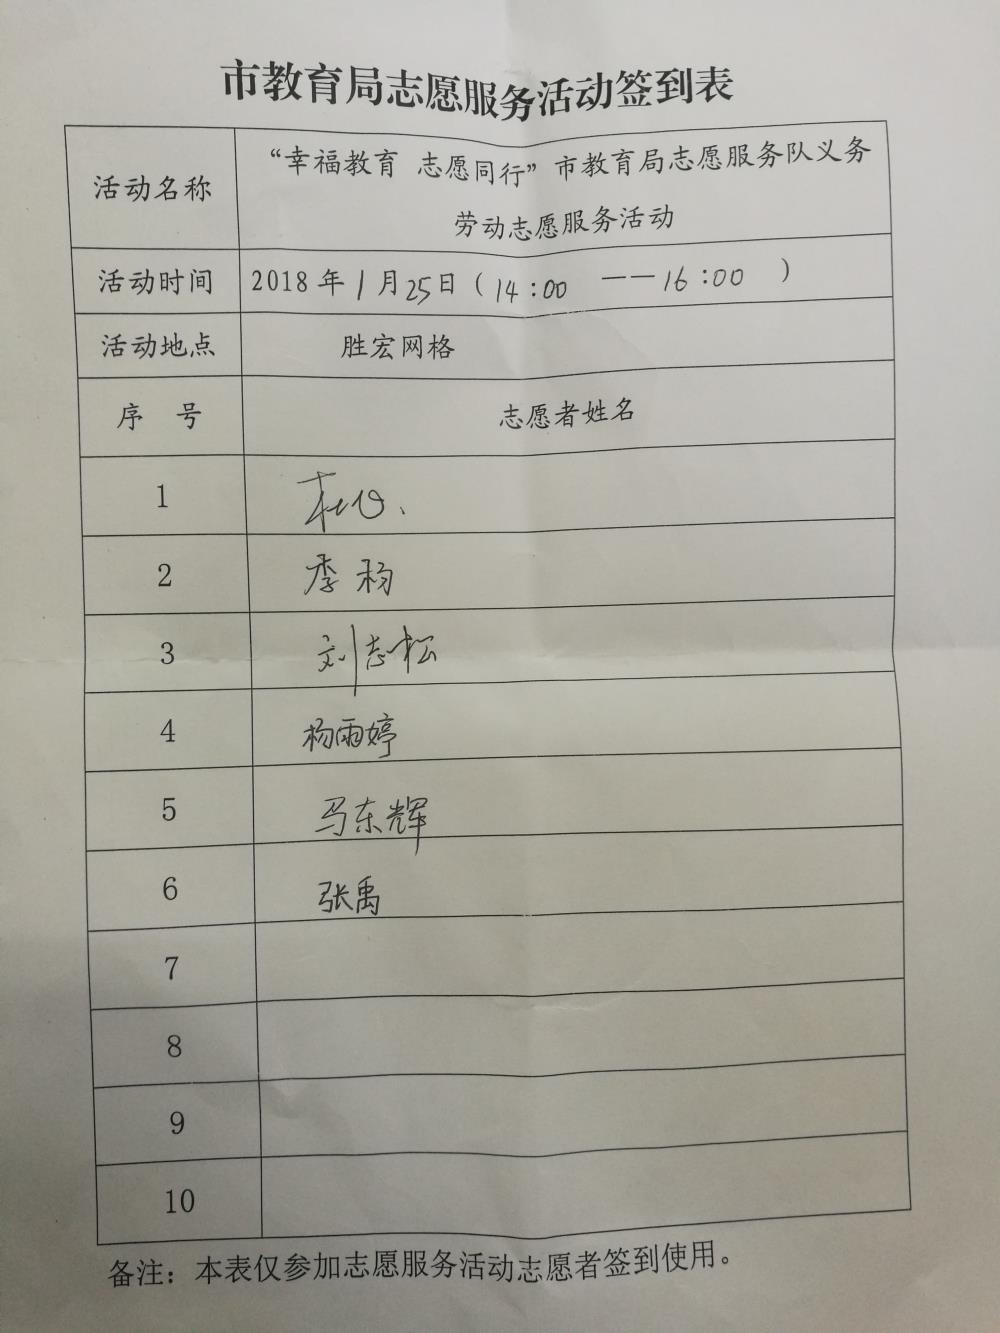 市教育局志愿服务活动签到表
活动名称
“幸福教育 志愿同行”市教育局志愿服务队义务
劳动志愿服务活动
活动时间 2018年1月25日(14:00 ——16:00 )
活动地点 胜宏网格
序 号 志愿者姓名
1
2 季杨
3 刘志松
4 杨雨婷
5 马东辉
6 张禹
7
8
9
10
备注：本表仅参加志愿服务活动志愿者签到使用。